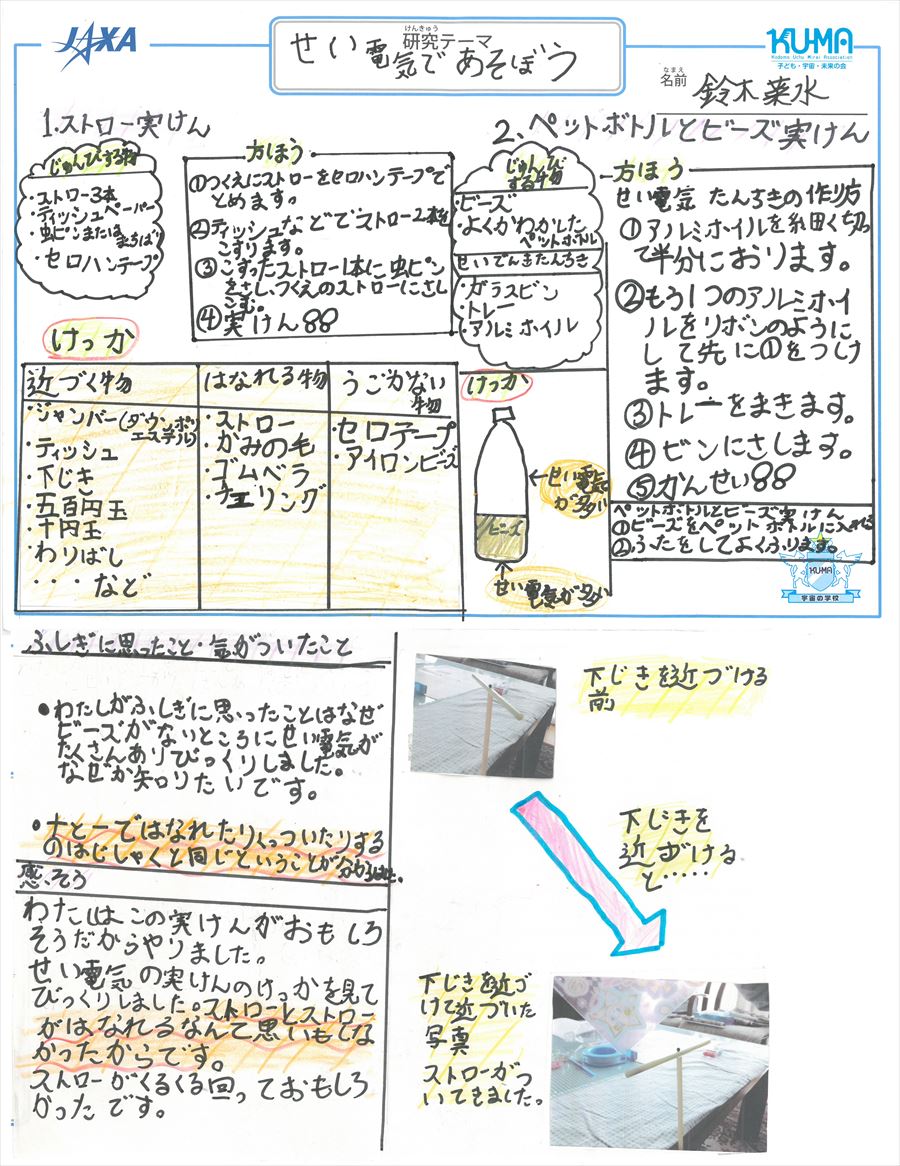 JAXA
けんきゅう
研究テーマ
せい電気であそぼう
KUMA
Kodomo Uchu Mirai Association
子ども・宇宙・未来の会
なまえ
名前
鈴木菜水
1.ストロー実けん
じゅんびする物
・ストロー3本
・ティッシュペーパー
・虫ピンまたはまちばり
・セロハンテープ
方ほう
①つくえにストローをセロハンテープで
とめます。
②ティッシュなどでストロー2本を
こすります。
③こすったストロー1本に虫ピン
をさし、つくえのストローにさし
こむ。
④実けん
けっか
近づく物
・ジャンバー(ダウンポリ
エステル)
・ティッシュ
・下じき
・五百円玉
・十円玉
・わりばし
・・・・など
はなれる物
・ストロー
・かみの毛
・ゴムベラ
うごかない
物
・セロテープ
・アイロンビーズ
2.ペットボトルとビーズ実けん
じゅんび
する物
・ビーズ
・よくかわかした
ペットボトル
せいでんきたんちき
・ガラスビン
・トレー
・アルミホイル
けっか
ビーズ
せい電気
が多い
せい電気が多い
方ほう
せい電気たんちきの作り方
①アルミホイルを細く切っ
て半分におります。
②もう1つのアルミホイ
ルをリボンのように
して先に①をつけ
ます。
③トレーをまきます。
④ビンにさします。
⑤かんせい
ペットボトルとビーズ実けん
①ビーズをペットボトルに入れる
②ふたをしてよくふります。
KUMA
宇宙の学校
ふしぎに思ったこと・気がついたこと
●わたしがふしぎに思ったことはなぜ
ビーズがないところにせい電気が
たくさんありびっくりしました。
なぜか知りたいです。
●+と-ではなれたりくっついたりする
のはじしゃくと同じということが分かりました。
感そう
わたしはこの実けんがおもしろ
そうだからやりました。
せい電気の実けんのけっかを見て
びっくりしました。ストローとストロー
がはなれるなんて思いもしな
かったからです。
ストローがくるくる回っておもしろ
かったです。
下じきを近づける
前
下じきを
近づける
と・・・・・
下じきを近づ
けて近づいた
写真
ストローがつ
いてきました。